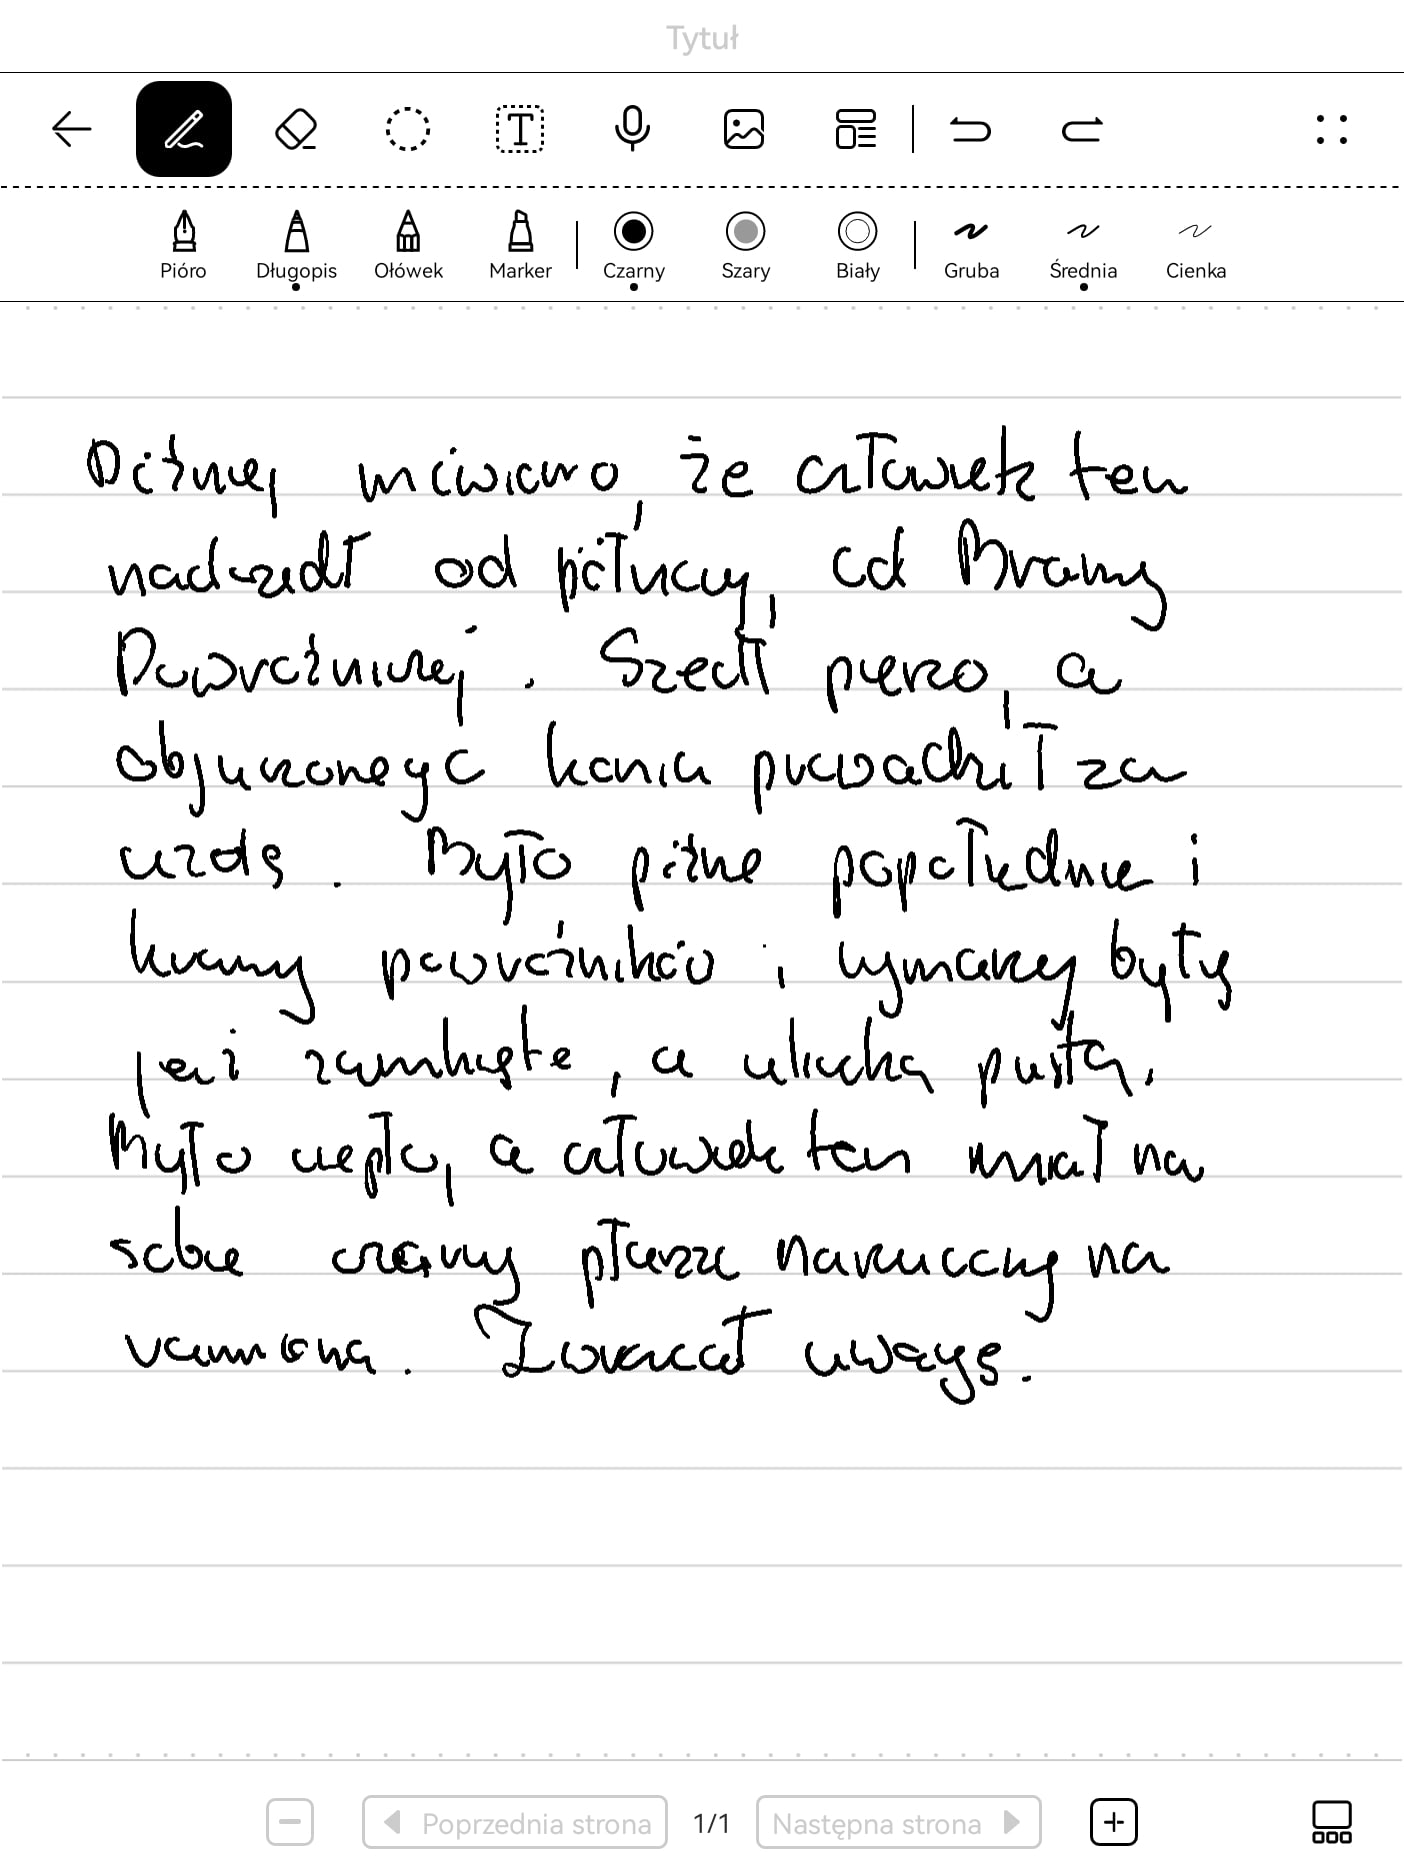 Tytuł
Pióro Długopis Ołówek Marker Czarny Szary Biały Gruba Średnia Cienka
Później mówiono, że człowiek ten
nadszedł od północy, od Bramy
Powroźniczej. Szedł pieszo, a
objuczonego konia prowadził za
uzdę. Było późne popołudnie i
kramy powroźników i rymarzy były
już zamknięte, a uliczka pusta.
Było ciepło, a człowiek ten miał na
sobie czarny płaszcz narzucony na
ramiona. Zwracał uwagę.
Poprzednia strona 1/1 Następna strona